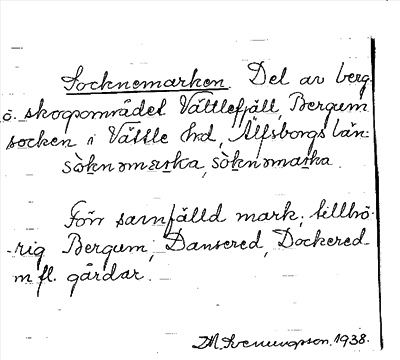 Socknemarken. Del av berg
o. skogsområdet Vättlefjäll, Bergum
socken i Vättle hrd, Älfsborgs län:
sòknəmarka, sòknəmaṣka.
Förr samfälld mark, tillhö-
-rig Bergum, Dansered, Dockered
m fl. gårdar.
1938.